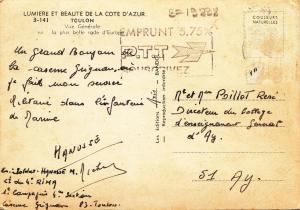 LUMIERE ET BEAUTE DE LA COTE D'AZUR
3-141 TOULON
Vue Générale
sur la plus belle rade d'Europe
Un Grand Bonjour de
la caserne Grignan, où
je fais mon service
Militaire dans l'infanterie
de Marine
HANOSSE
HANOSSE M. Michel
et du 4e RIMA
1e Compagnie 4e Section
Caserne Grignan 83. Toulon
EMPRUNT 5.75%
PTT
SOUSCRIVEZ
COULEURS
NATURELLES
Mr et Mme Poillot René
Directeur du Collège
d'enseignement Général
d'Ay.
51 Ay.